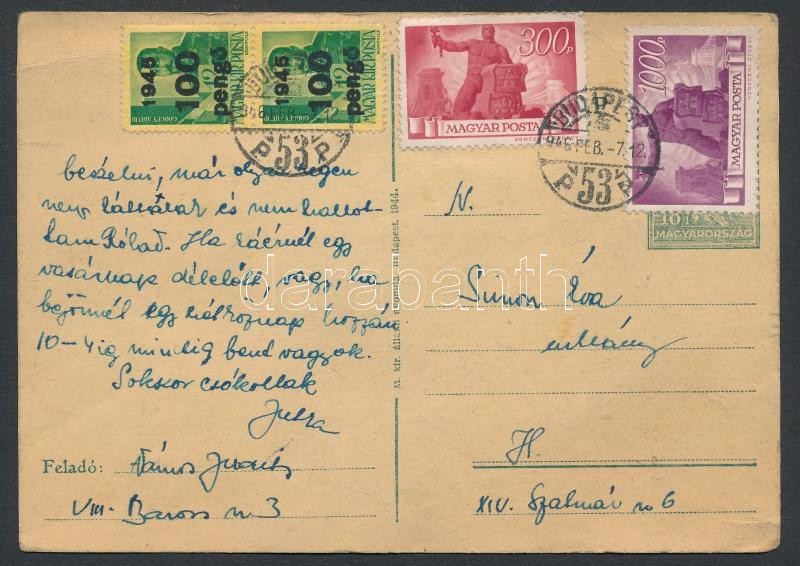 1945 100 pengő
MAGYAR KIR. POSTA
GÖRGEY ARTUR
1945 100 pengő
MAGYAR KIR. POSTA
GÖRGEY ARTUR
300P
MAGYAR POSTA
1000P
MAGYAR POSTA
BUDAPEST
946 FEB. -7. 12
P 53 P
P 53 P
10
MAGYARORSZÁG
beszélni, már olyan régen
nem láttalak és nem hallot-
tam Rólad. Ha ráérnél egy
vasárnap délelőtt, vagy, ha
bejönnél egy hétköznap hozzám
10-4ig mindig bent vagyok.
Sokszor csókollak
Jutka
Feladó: Vámos
VIII. Baross u 3
M. kir. állami nyomda, Budapest. 1944.
N.
Simon Éva
H.
XIV. Szatmár u 6
darabanth